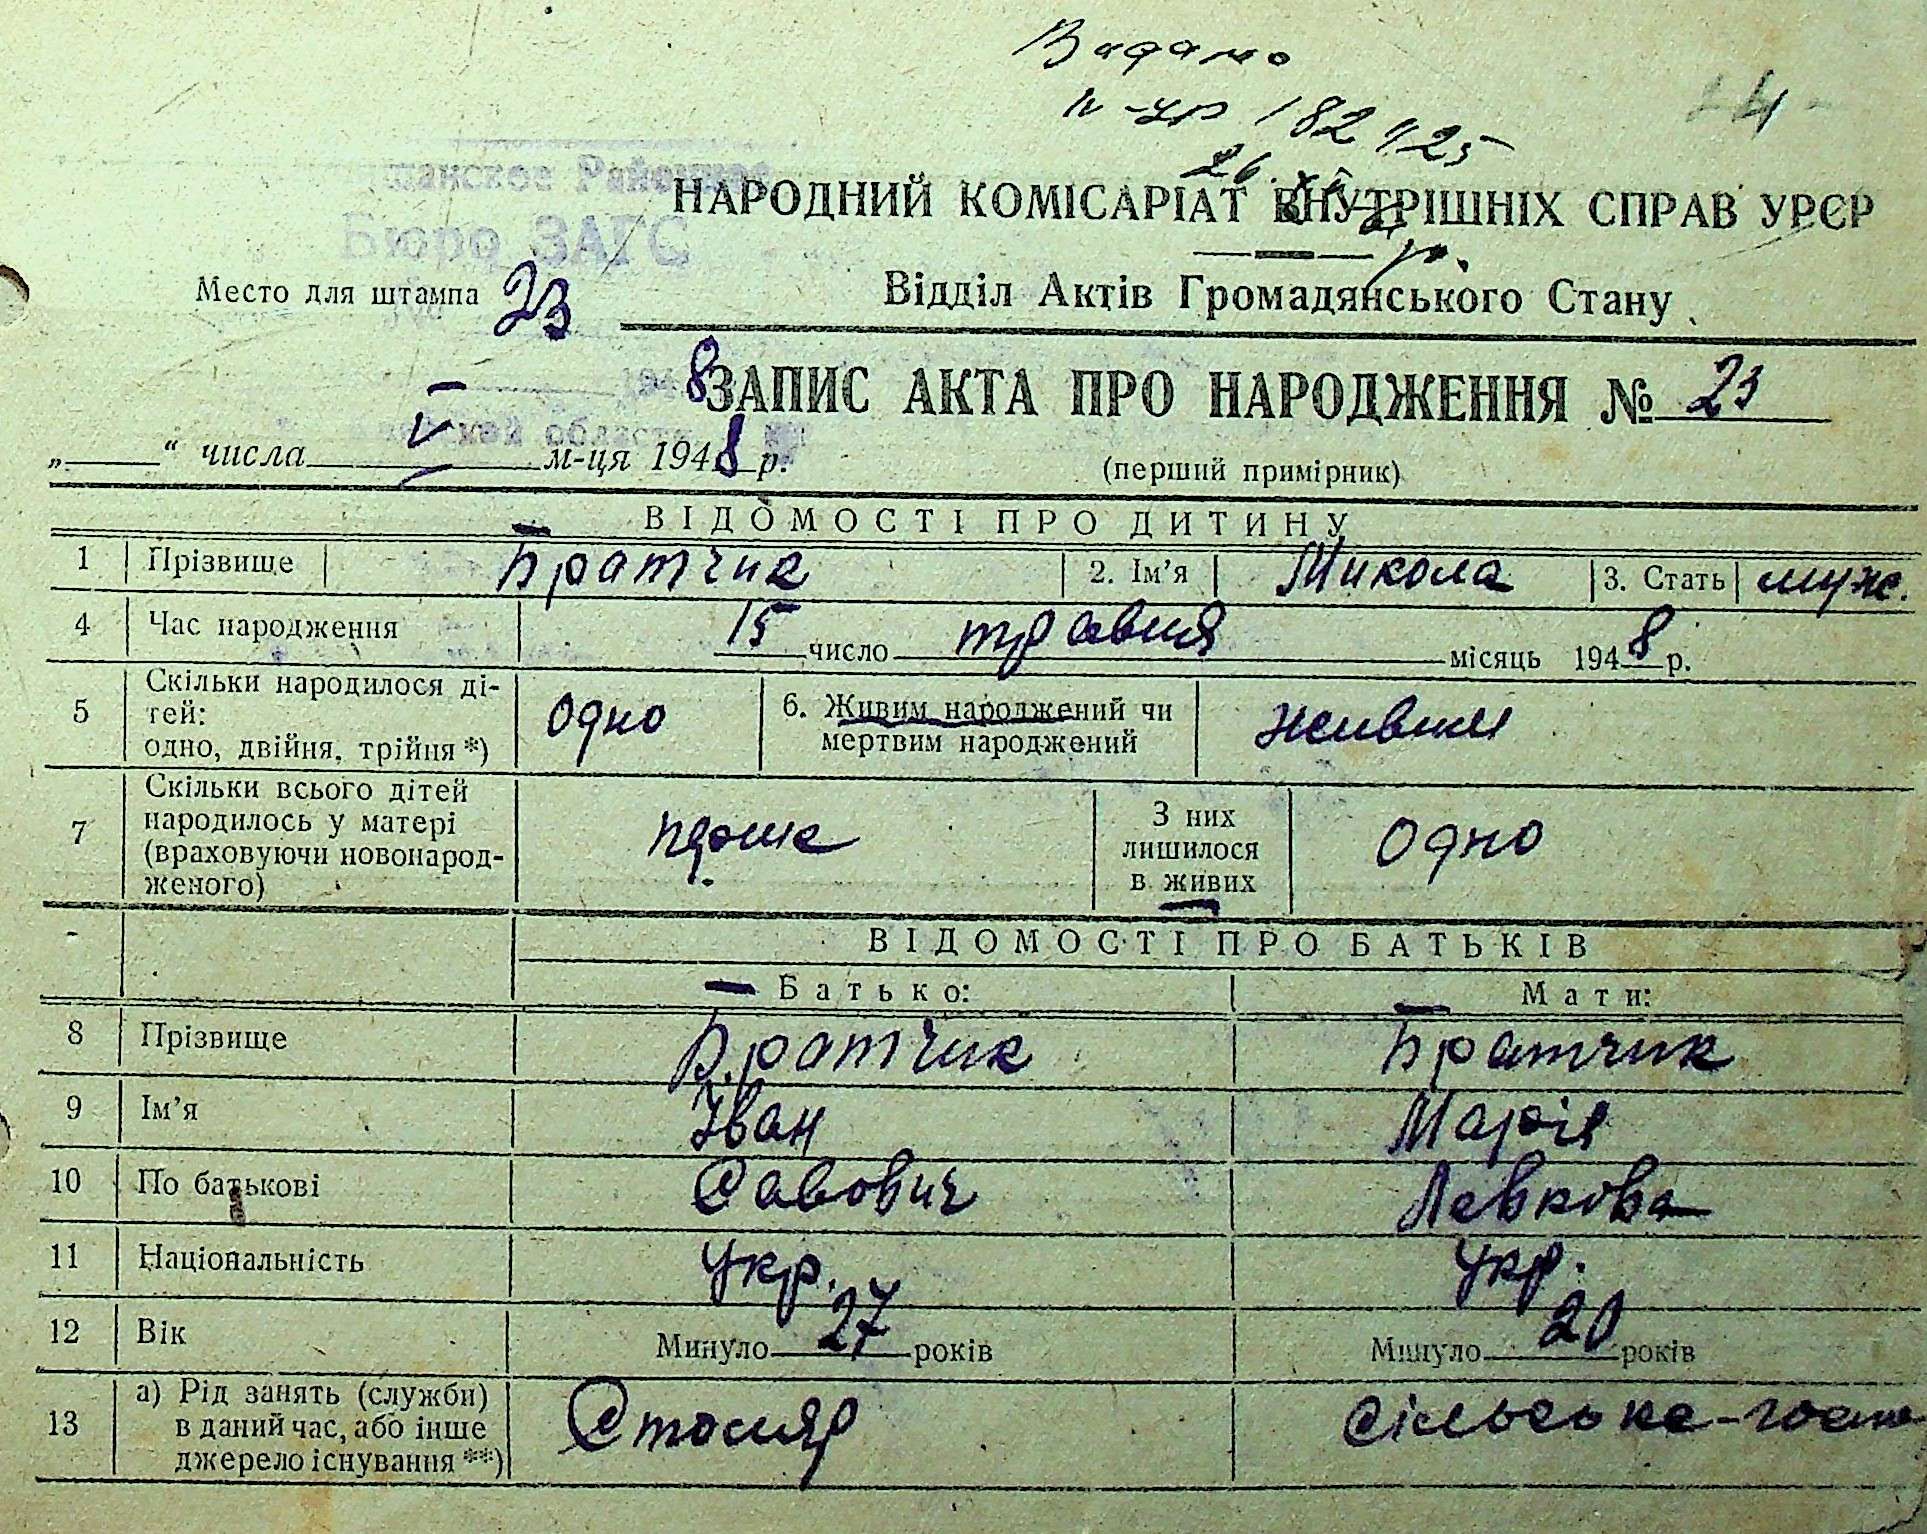 Видано
182425
26
4
Районное
Бюро ЗАГС
НАРОДНИЙ КОМІСАРІАТ ВНУТРІШНІХ СПРАВ УРСР
Відділ Актів Громадянського Стану
Место для штампа 23
ЗАПИС АКТА ПРО НАРОДЖЕННЯ № 23
1948
области
„ “ числа V м-ця 1948 р.
(перший примірник)
ВІДОМОСТІ ПРО ДИТИНУ
1 Прізвище Братчик 2. Ім’я Микола 3. Стать муж.
4 Час народження 15 число травня місяць 1948 р.
5 Скільки народилося ді-
тей:
одно, двійня, трійня *) одно
6. Живим народжений чи
мертвим народжений живим
7 Скільки всього дітей
народилось у матері
(враховуючи новонарод-
женого)
З них
лишилося
в живих одно
ВІДОМОСТІ ПРО БАТЬКІВ
Батько: Мати:
8 Прізвище Братчик Братчик
9 Ім’я Іван Марія
10 По батькові Савович Левкова
11 Національність укр. укр.
12 Вік Минуло 27 років Минуло 20 років
13 а) Рід занять (служби)
в даний час, або інше
джерело існування **) Столяр сільське-госп